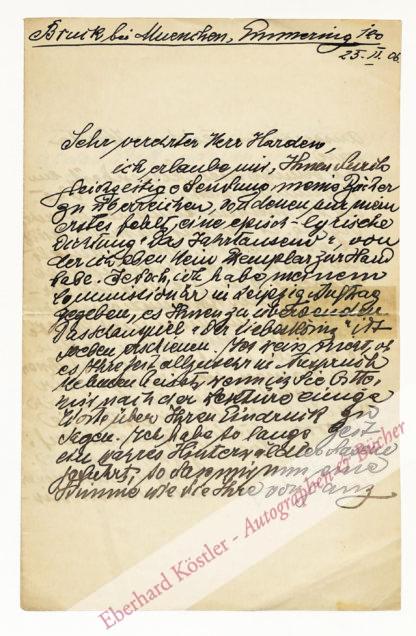 Bruck bei Muenchen, Emmering 120
25. II. 06.
Sehr verehrter Herr Harden,
ich erlaube mir, Ihnen durch
gleichzeitige Sendung meine Bücher
zu überreichen, von denen nur mein
erstes fehlt, eine episch-lyrische
Dichtung: "Das Jahrtausend", von
der ich eben kein Exemplar zur Hand
habe. Jedoch, ich habe meinem
Commissionär in Leipzig Auftrag
gegeben, es Ihnen zu übersenden.
Das Schauspiel "Der Liebeskönig" ist
soeben erschienen. Ich weiss nicht, ob
es Ihre Zeit allzusehr in Anspruch
nehmen heisst, wenn ich Sie bitte,
mir nach der Lektüre einige
Worte über Ihren Eindruck zu
sagen. Ich habe so lange Zeit
ein wahres
geführt, so dass mir nun eine
Stimme wie die Ihre von ganz
Eberhard Köstler - Autographen & Bücher